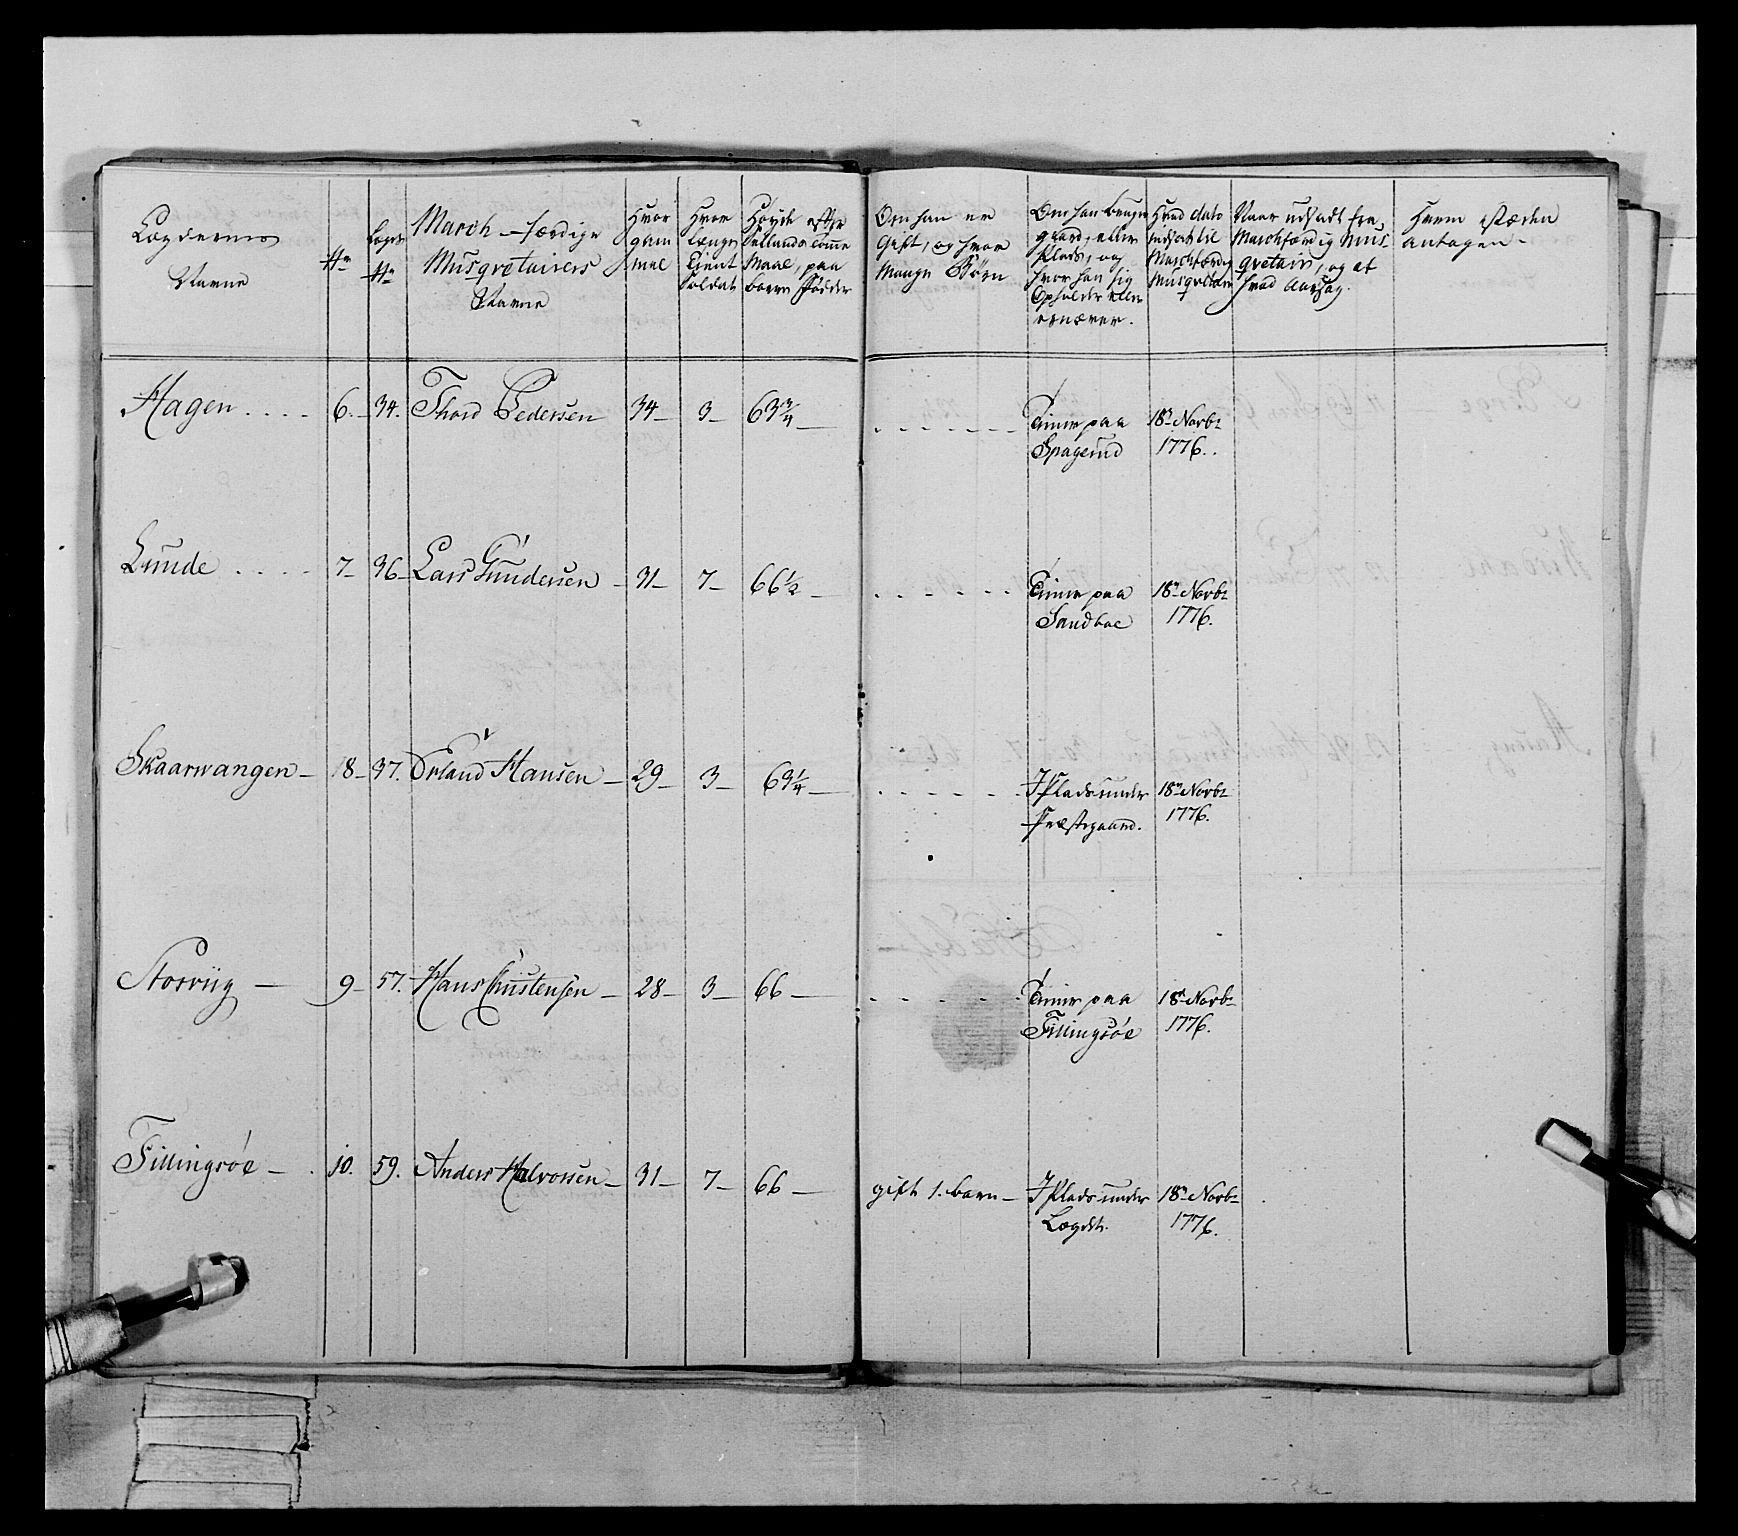 Lægdernes
Navne
Nr
Lægs
Nr
March-færdige
Musqvetairers
Navne
Hvor
gam
mel
Hvor
længe
Tient
Soldat
Høyde efter
Sællands Tomme
Maal, paa
barre Fødder
Om han er
Gift, og hvor
Mange Børn
Om han bruger
gaard, eller
Plads, og
hvor han sig
Opholder eller
ernærer.
Hvad dato
indsadt til
Marchfærdig
Musqvetair
Naar udsadt fra
Marchfærdig Mus-
qvetair, og af
hvad Aarsag.
Hvem i Stæden
antagen.
Hagen .... 6. 34. Thord Pedersen 34 - 3 - 63 3/4 - Tiener paa 18de Novbr
Spagerud 1776.
Lunde .... 7 - 36 - Lars Gundersen - 31 - 7 - 66 1/2 - Tiener paa 18de Novbr
Sandboe 1776.
Skaarwangen - 8 - 37. Erland Hansen - 29 - 3 - 63 1/4 - I Plads under 18de Novbr
Præstegaard. 1776.
Storviig - 9 - 57. Hans Christensen - 28 - 3 - 66 - Tiener paa 18de Novbr
Fillingsøe 1776.
Fillingsøe - 10. 59. Anders Halvorsen - 31 - 7 - 66 - gift 1. barn - I Plads under 18de Novbr
Lægdet. 1776.